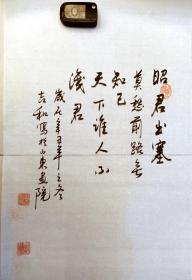 昭君出塞
莫愁前路无
知己
天下谁人不
识君
岁在辛丑年之冬
吉和写于山东画院